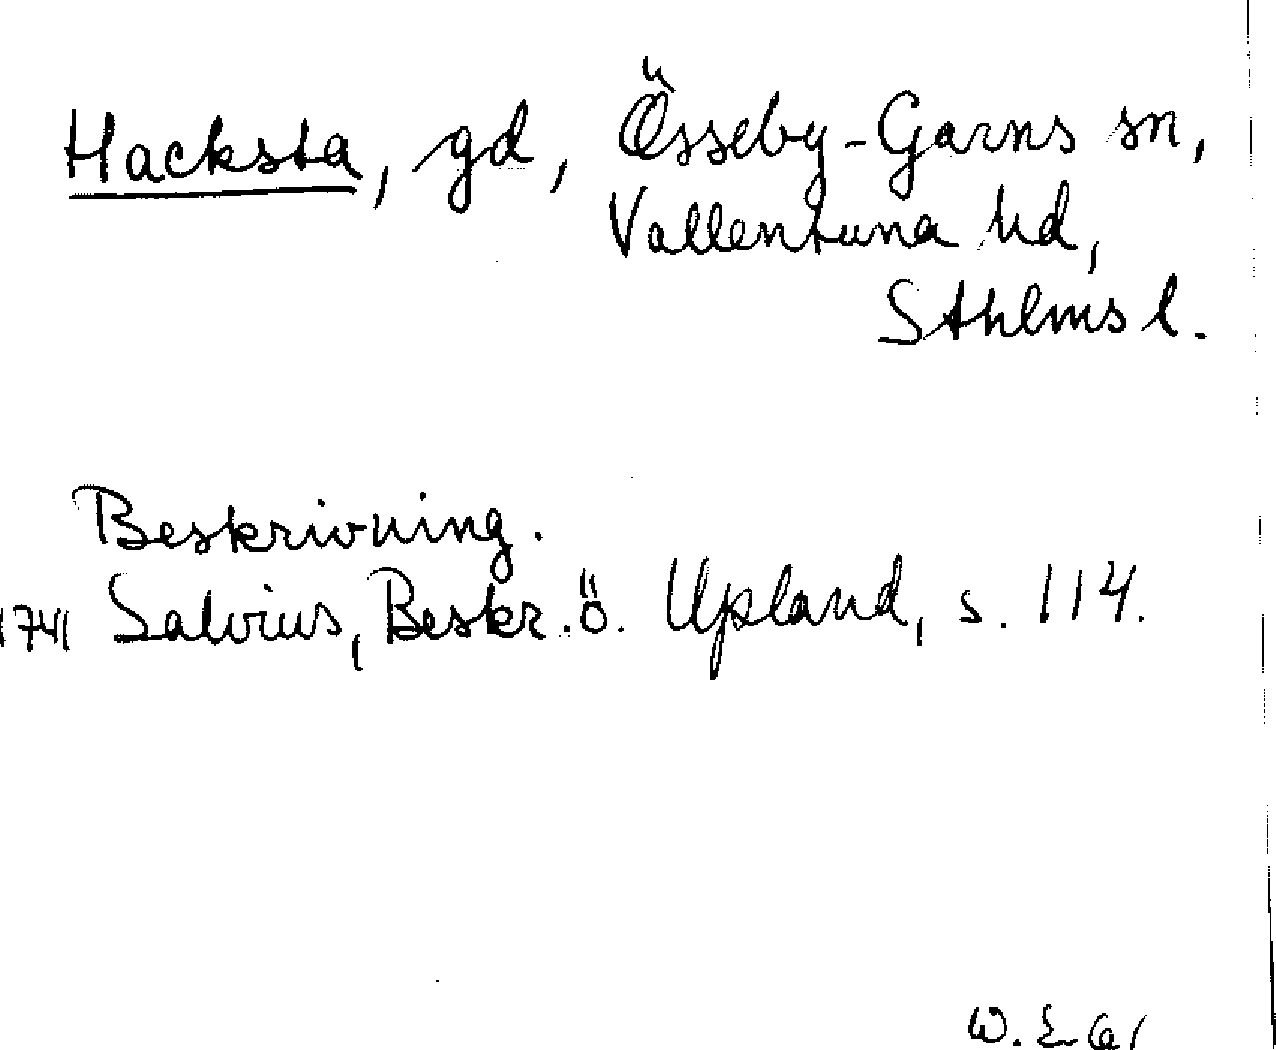 Hacksta, gd, Össeby-Garns sn,
Vallentuna hd,
Sthlms l.
Beskrivning.
1741 Salvius, Beskr. ö. Upland, s. 114.
W. E-G/